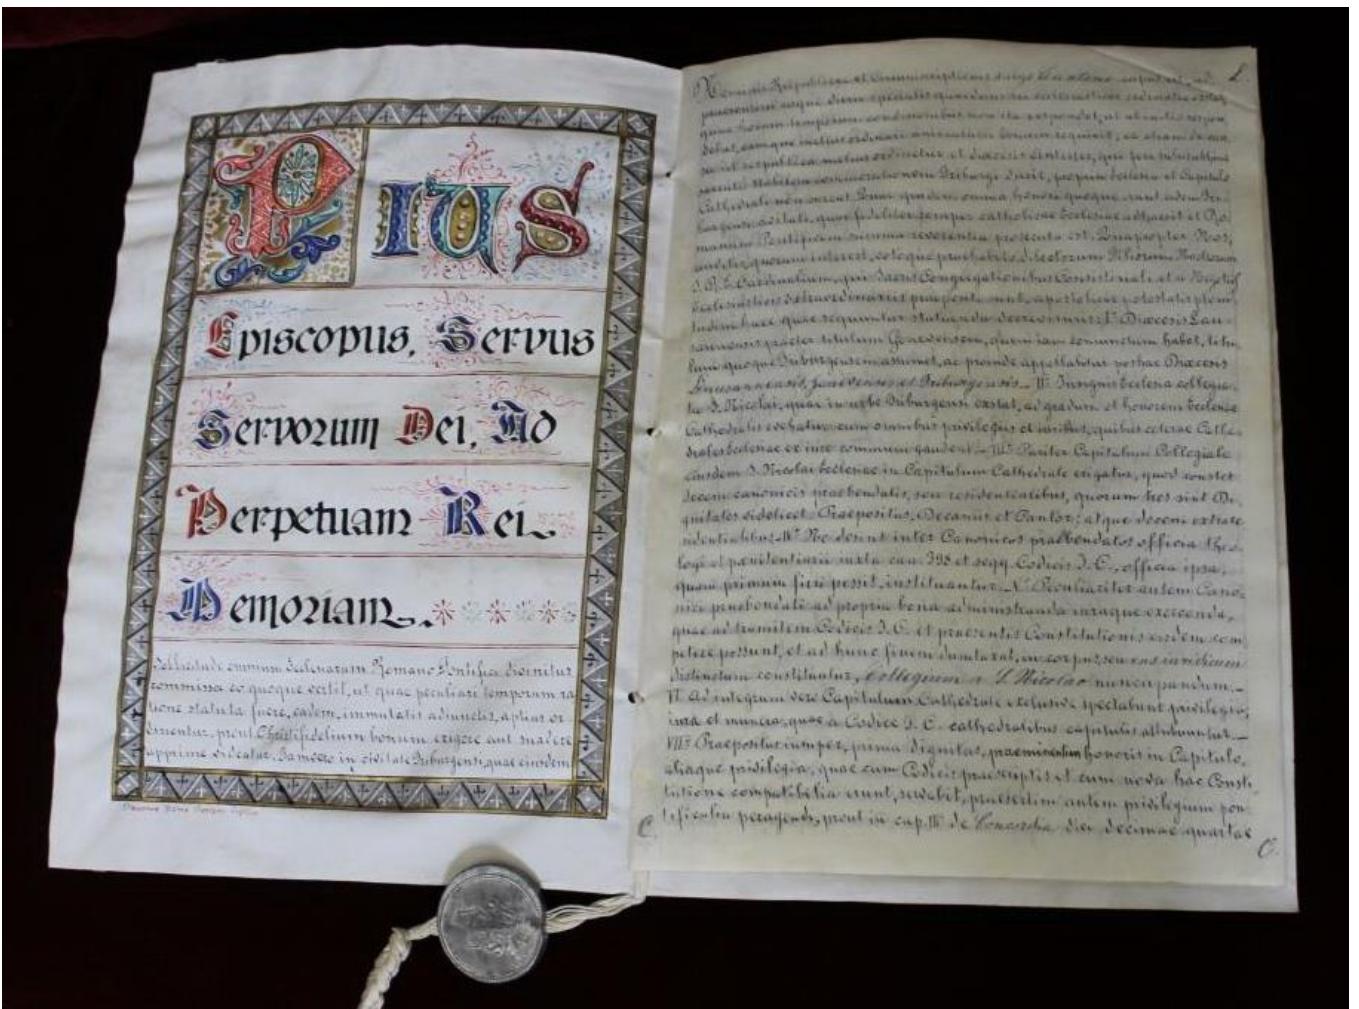 Pius
Episcopus, Servus
Servorum Dei, Ad
Perpetuam Rei
Memoriam.
Sollicitudo omnium Ecclesiarum Romano Pontifici divinitus
commissa eo quoque vertit, ut quae peculiari temporum ra
tione statuta fuere, eadem, immutatis adiunctis, aptius or
dinentur, prout Christifidelium bonum exigere aut suadere
apprime videatur. Jamvero in civitate Friburgensi, quae eiusdem
L.
nominis Reipublicae et Circumscriptionis caput est, ad
praesentem usque diem specialis quaedam
horum temporum conditionibus non ita respondet, ut
eamque melius ordinari animarum bonum requirit; eo etiam
melius ordinetur et dioecesis Antistes, qui
stabilem commorationem Friburgi duxit, propria Ecclesia et Capitulo
Cathedrali non careat. Quae quidem omnia honori quoque sunt eidem Fri
burgensi civitati, quae fideliter semper catholicae Ecclesiae adhaesit et Ro
manum Pontificem summa reverentia prosecuta est. Quapropter Nos,
auditis, quorum interest, eoque praehabito dilectorum filiorum Nostrorum
S. R. E. Cardinalium, qui Sacris Congregationibus Consistoriali et a Negotiis
Ecclesiasticis Extraordinariis praepositi sunt, apostolicae potestatis pleni
tudine haec quae sequuntur statuenda decrevimus: I° Dioecesis Lau
sannensis praeter titulum Genevensem, quem iam coniunctum habet, titu
lum quoque Friburgensem assumet, ac proinde appellabitur posthac Dioecesis
Lausannensis, Genevensis et Friburgensis. _ II° Insignis Ecclesia collegia
ta S. Nicolai, quae in urbe Friburgensi exstat, ad gradum et honorem Ecclesiae
Cathedralis evehatur cum omnibus privilegiis et iuribus, quibus ceterae Cathe
drales Ecclesiae ex iure communi gaudent. _ III° Pariter Capitulum Collegiale
eiusdem S. Nicolai Ecclesiae in Capitulum Cathedrale erigatur, quod constet
decem canonicis praebendatis, seu residentialibus, quorum tres sint Di
gnitates videlicet: Praepositus, Decanus et Cantor; atque decem extrare
sidentialibus. IV° Ne desint inter Canonicos praebendatos officia theo
logi et poenitentiarii iuxta can. 398 et seqq. Codicis J. C., officia ipsa,
quam primum fieri possit, instituantur. _ V° Peculiariter autem Cano
nici praebendati ad propria bona administranda iuraque exercenda,
quae ad tramitem Codicis J. C. et praesentis Constitutionis eisdem com
petere possunt, et ad hunc finem dumtaxat, in corpus, seu ens iuridicum
distinctum constituantur, Collegium a S. Nicolao nuncupandum. _
VI° Ad integrum vero Capitulum Cathedrale exclusive spectabunt privilegia,
iura et munera, quae a Codice J. C. cathedralibus capitulis attribuuntur. _
VII° Praepositus insuper, prima Dignitas, praeminentiam honoris in Capitulo,
aliaque privilegia, quae cum Codicis praescriptis et cum nova hac Consti
tutione compatibilia erunt, servabit, praesertim autem privilegium pon
tificalia peragendi, prout in cap. III° de Concordia diei decimae quartae
C.
C.